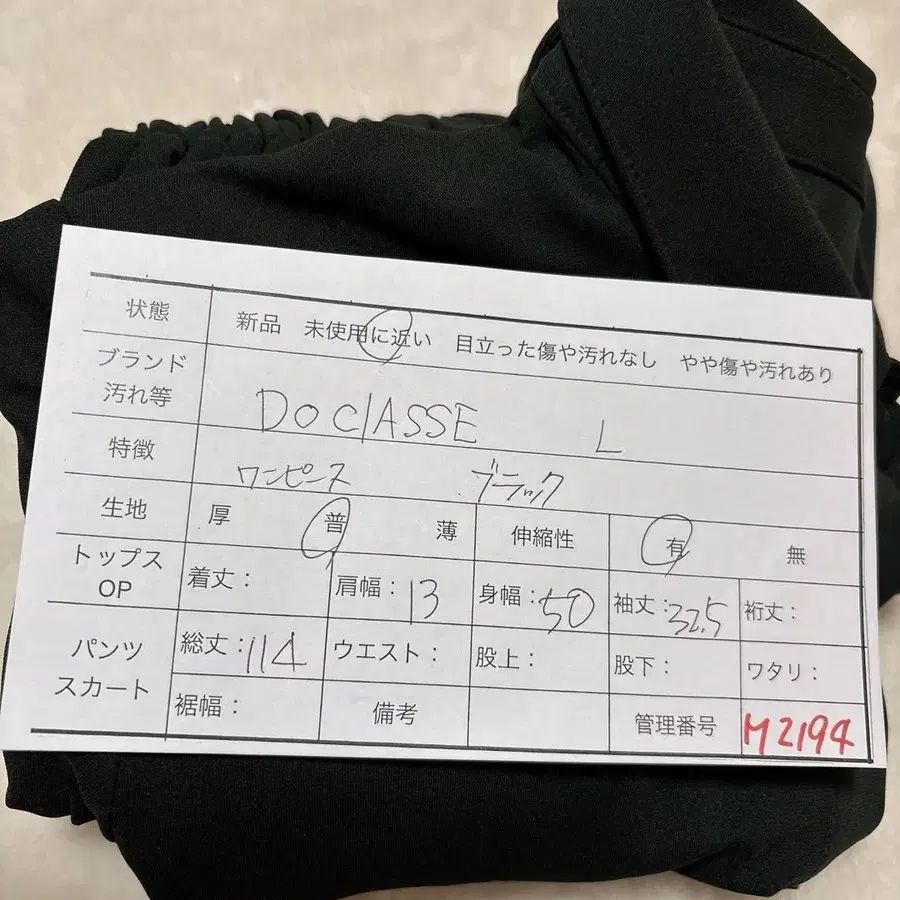 状態 新品 未使用に近い 目立った傷や汚れなし やや傷や汚れあり
ブランド
汚れ等 DoCLASSE L
特徴 ワンピース ブラック
生地 厚 普 薄 伸縮性 有 無
トップス
OP 着丈: 肩幅:13 身幅:50 袖丈:32.5 裄丈:
パンツ
スカート 総丈:114 ウエスト: 股上: 股下: ワタリ:
裾幅: 備考 管理番号 M2194